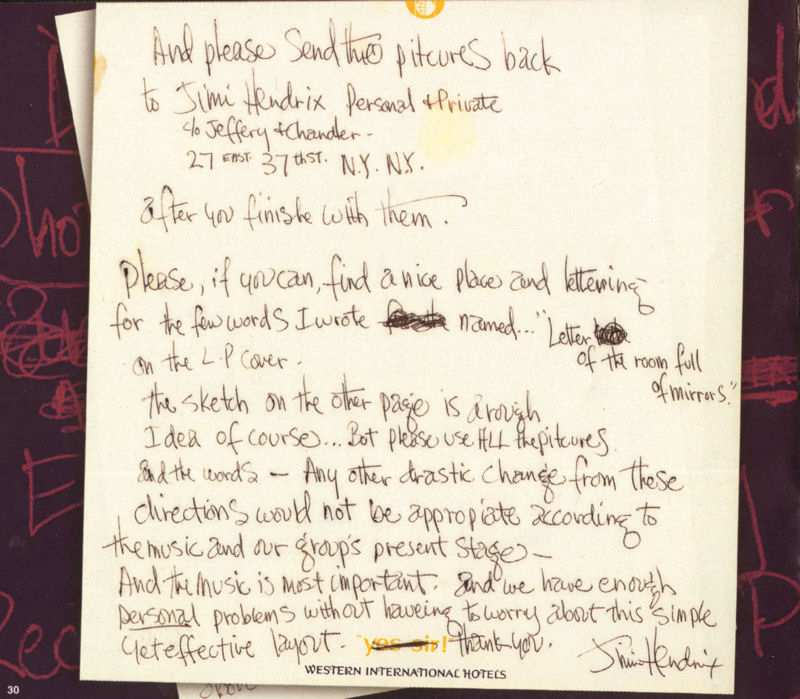 And please Send the pitcures back
to Jimi Hendrix Personal & Private
c/o Jeffery & Chandler -
27 EAST. 37th ST. N.Y. N.Y.
after you finishe with them.
Please, if you can, find a nice place and lettering
for the few words I wrote named... "Letter
of the room full
of mirrors."
on the L.P cover.
the sketch on the other page is a rough
Idea of course... But please use ALL the pitcures
and the words — Any other drastic change from these
directions would not be appropiate according to
the music and our group's present stage —
And the music is most important. and we have enough
personal problems without haveing to worry about this simple
yet effective layout. "yes sir!" thank you. Jimi Hendrix
WESTERN INTERNATIONAL HOTELS
30